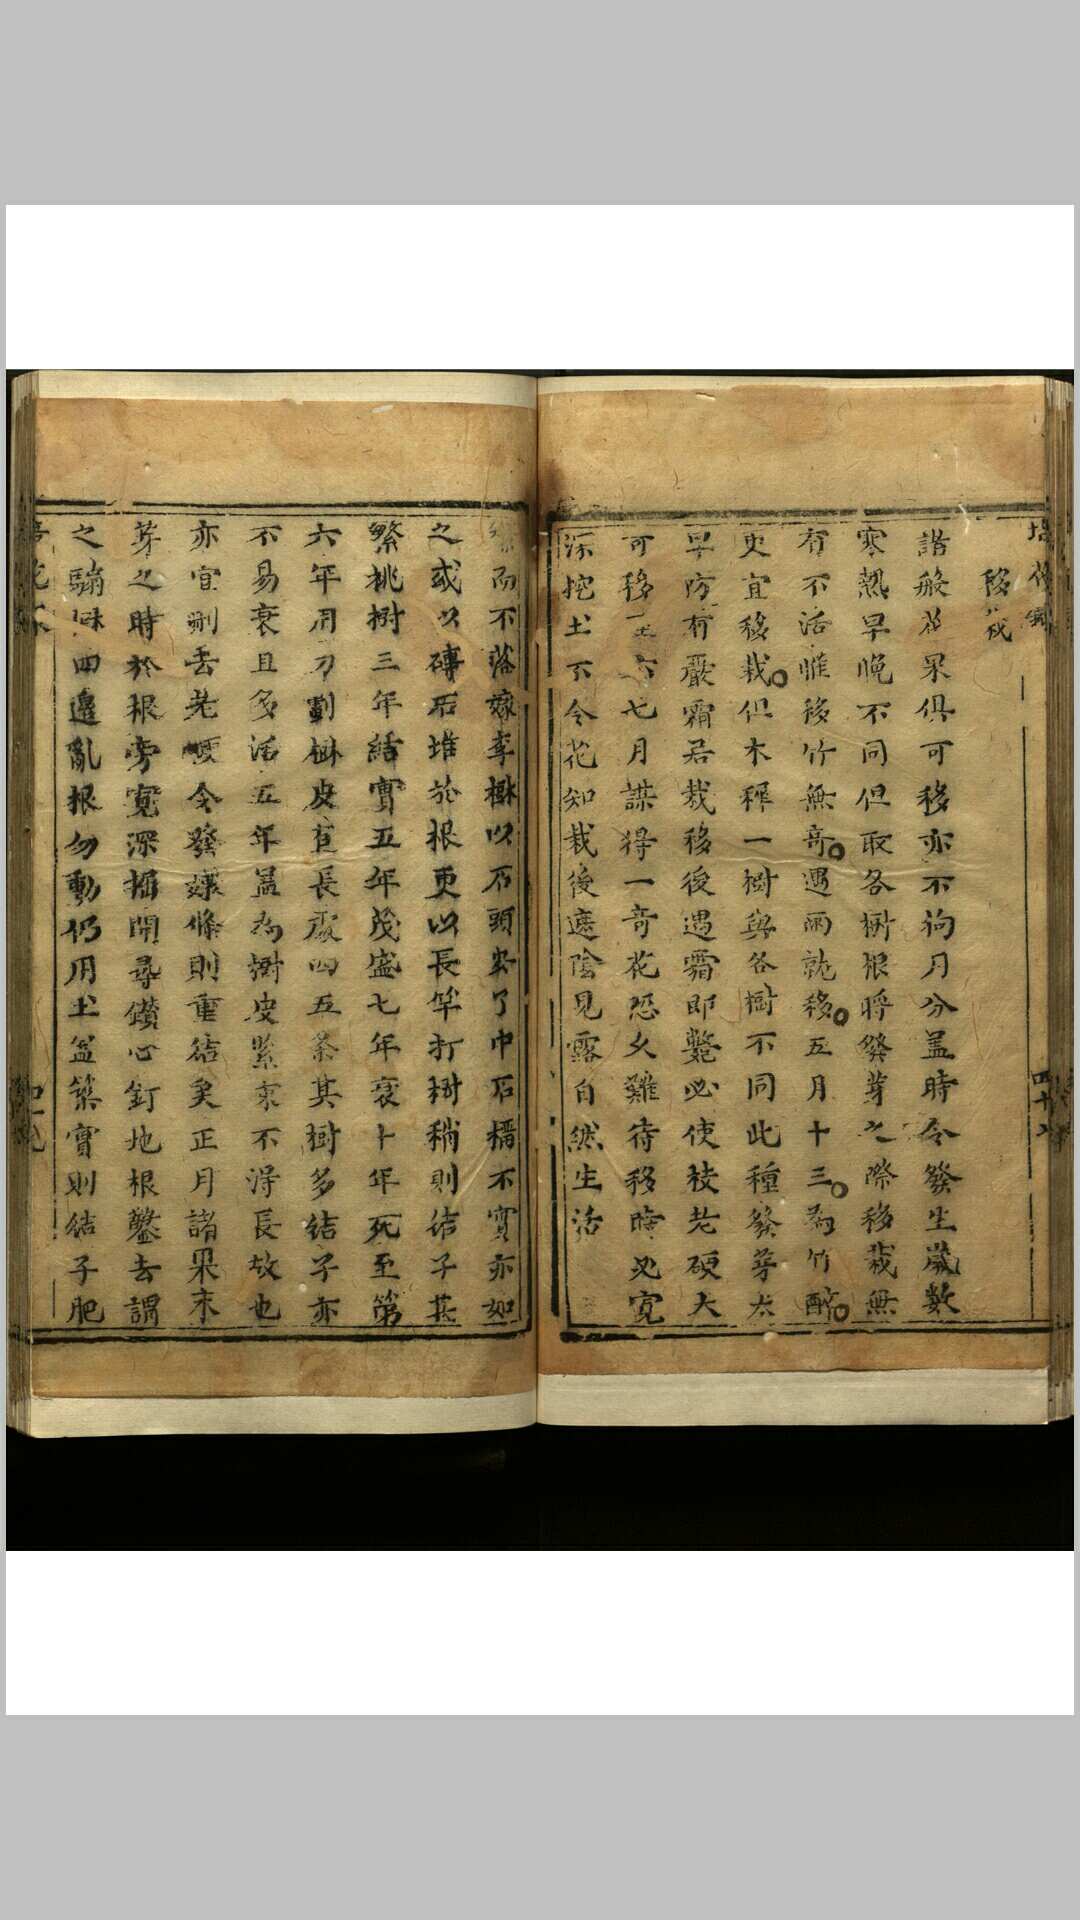 移栽
諸般花果俱可移亦不拘月分盖時令發生歲數
寒熱早晚不同但取各樹根將發芽之際移栽無
有不活惟移竹無竒遇雨就移五月十三為竹醉
更宜移栽俱木穉一樹與各樹不同此種發芽太
早防有嚴霜若栽移後遇霜即斃必使枝老硬大
可移至六七月謀得一竒花恐久難待移時必寛
深挖土不令花知栽後遮陰見露自然生活
而不落嫁李樹以石頭安了巾石橊不實亦如
之或以磚石堆於根更以長竿打樹稍則结子甚
繁桃樹三年結實五年茂盛七年衰十年死至第
六年用刀劃樹皮有長𠫵四五条其樹多結子亦
不易衰且多活五年盖為樹皮緊束不淂長故也
亦宜刪去老梗令發嫰條則重结矣正月諸果未
芽之時於根旁寛深掘開尋鑚心釘地根鑿去謂
之騸樹四邉亂根勿動仍用土盆築實則结子肥